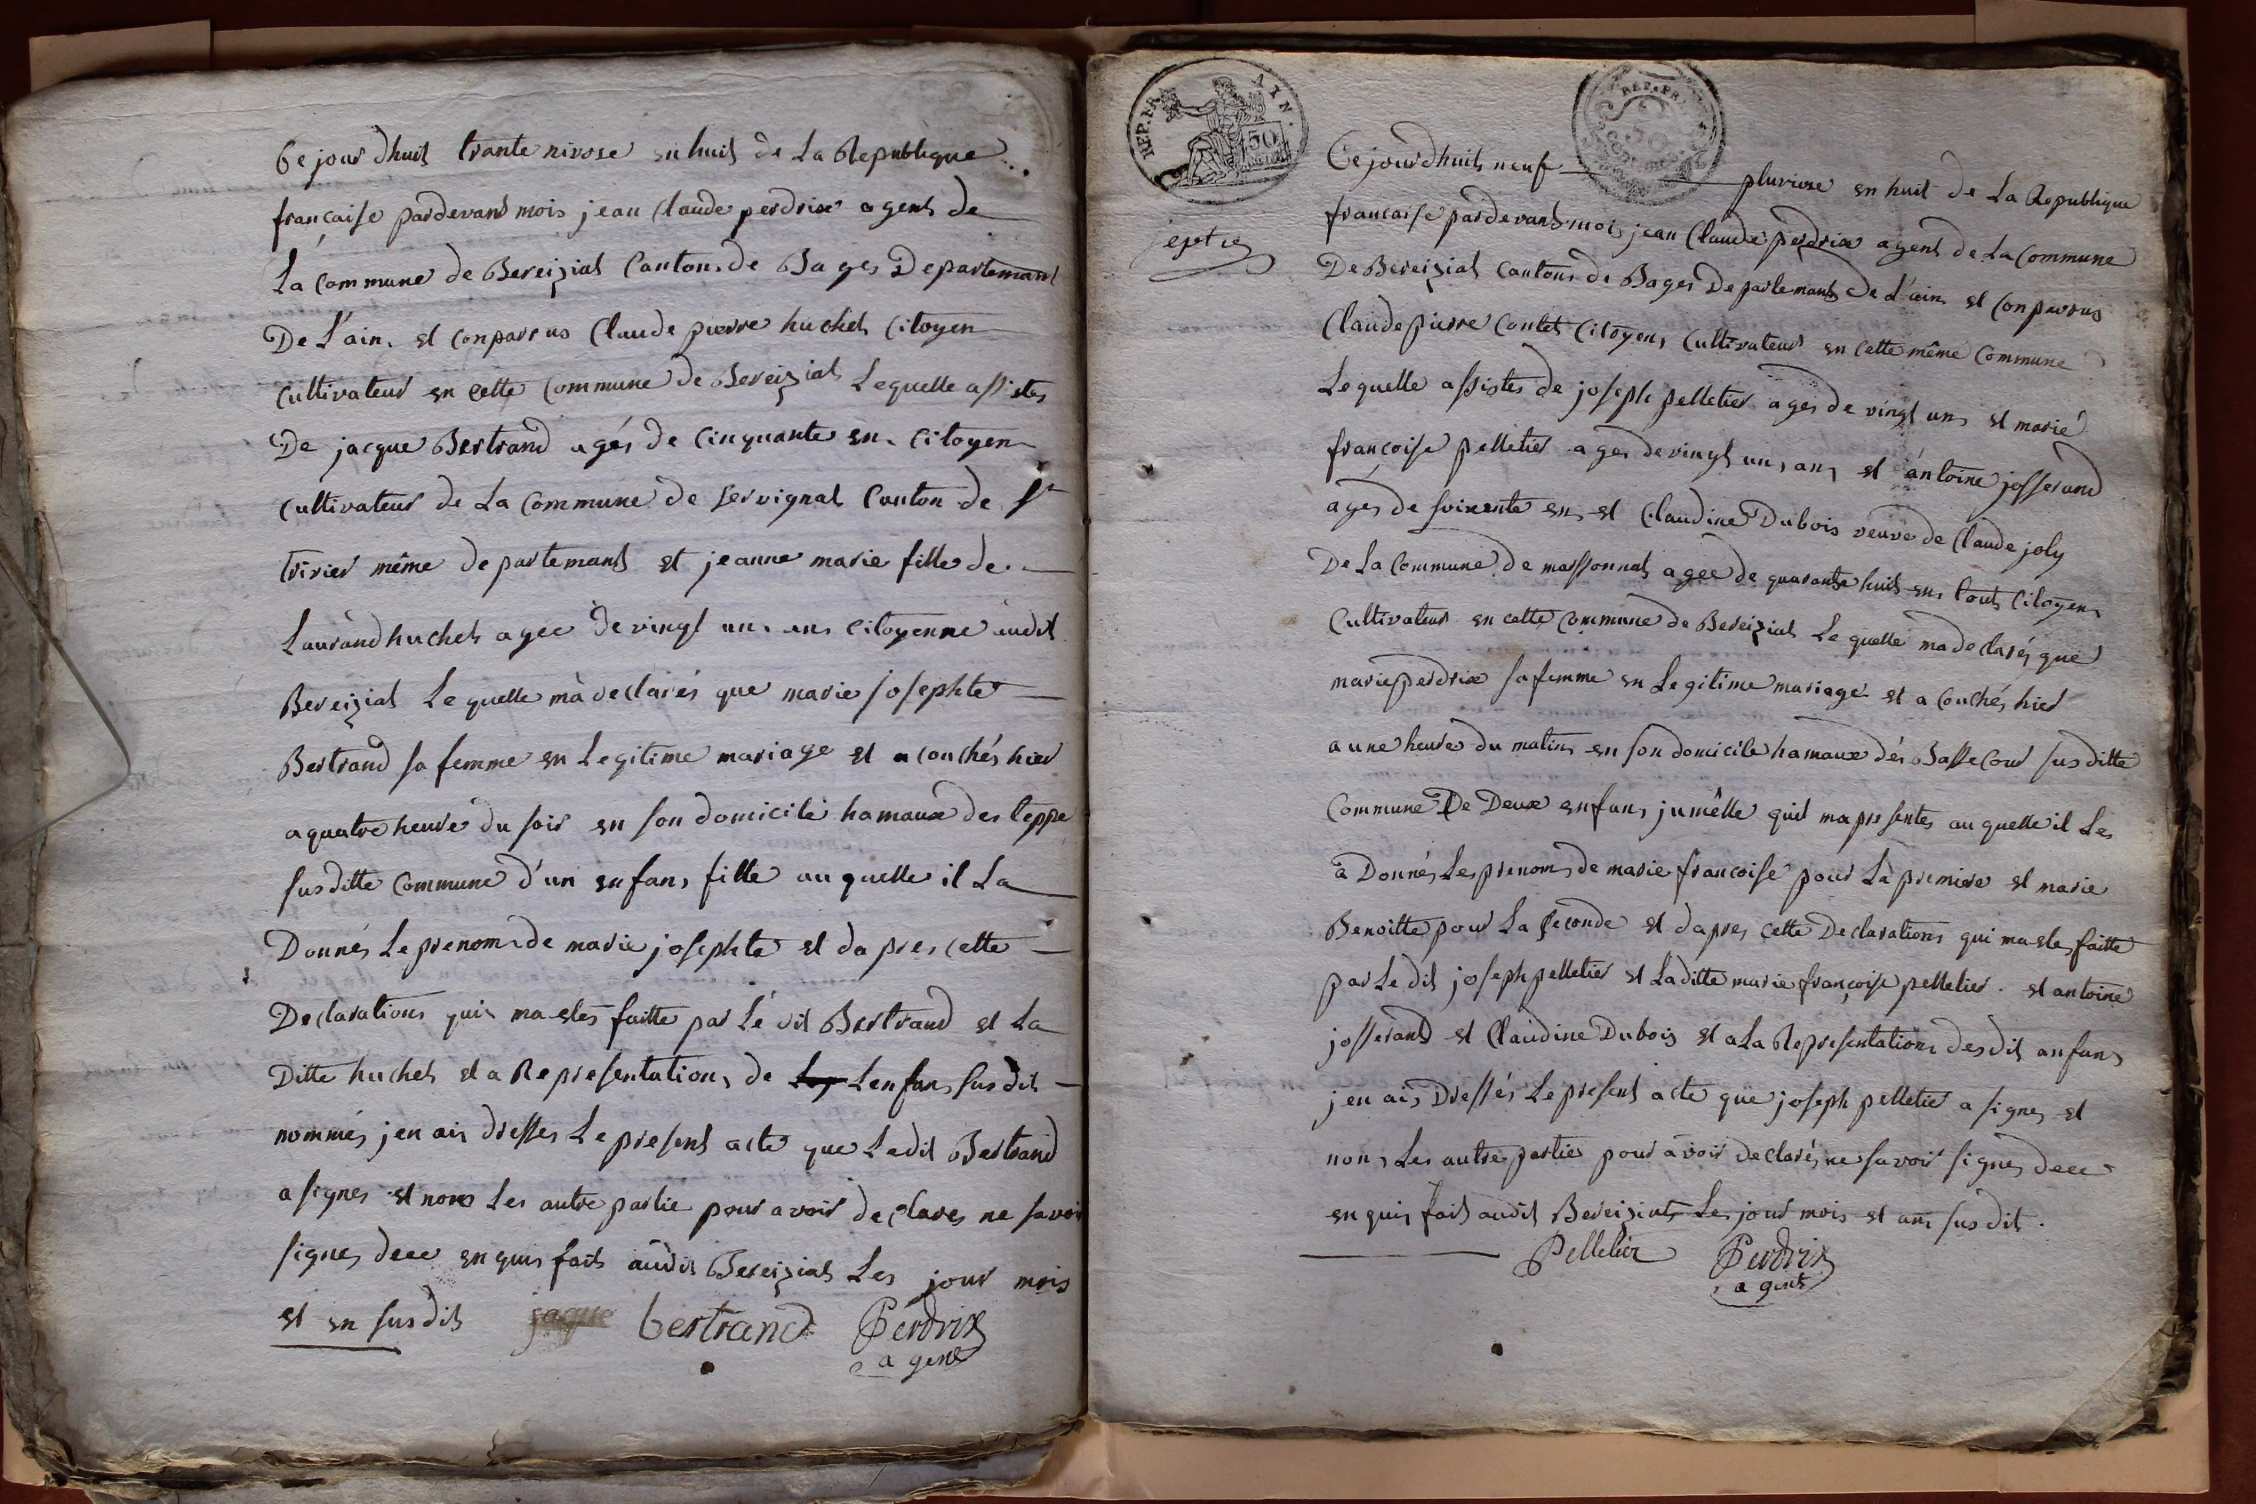 Ce jour dhuit trante nivose en huit de La Republique
françaisse pardevant mois jean Claude perdrix agent de
La Commune de Bereiziat Canton de Bages Departemant
De L'ain et conparrus Claude pierre huchet Citoyen
Cultivateur en cette Commune de Bereiziat Lequelle assistes
De jacque Bertrand agés de Cinquante en Citoyen
Cultivateur de La Commune de Servignat Canton de St
trivier même departemant et jeanne marie fille de
Laurand huchet agee de vingt un ans Citoyenne audit
Bereiziat Le quelle mà declarés que marie josephte
Bertrand sa femme en Legitime mariage et a couchés hier
a quatre heure du soir en son domicile hamaux des teppe
sus ditte Commune d'un enfans fille au quelle il La
Donnés Le prenom de marie josephte et da pres cette
Declarations qui ma etes faitte par Le dit Bertrand et La
Ditte huchet et a Representations de Lenfans sus dit
nommés jen ais dresses Le present acte que Le dit Bertrand
a signes et nons Les autre partie pour avoir declares ne savoir
signes deee en quis fait audit Bereiziat Les jour mois
et en sus dit jaque bertrand Perdrix
agent
REP. FR. AIN. 50
REP. FR.
Ce jour dhuit neuf pluviose en huit de La Republique
francaisse pardevant mois jean Claude perdrix agent de La Commune
De Bereiziat Canton de Bages Departemant de L'ain et conparrus
Claude pierre Contet Citoyens Cultivateur en cette même Commune
Le quelle assistes de joseph pelletier ages de vingt un et marie
françoise pelletier ages de vingt un ans et antoine josserand
agés de soixente en et Claudine Dubois veuve de Claude joly
De La Commune de marssonnat agee de quarante huit en tout Citoyens
Cultivateur en cette Commune de Bereiziat Le quelle ma declarés que
marie perdrix sa femme en Legitime mariage et a Couchés hier
a une heure du matin en son domicile hamaux dés Basse Cour sus ditte
Commune De Deux enfans jumêlle quil ma presentes au quelle il Les
a Donnés Les prenoms de marie francoise pour La premiere et marie
Benoitte pour La seconde et dapres cette Declarations qui ma etes faitte
par Le dit joseph pelletier et La ditte marie françoise pelletier et antoine
josserand et Claudine Dubois et a La Representations des dit anfans
jen ais Dressés Le present acte que joseph pelletier a signes et
nons Les autre partie pour avoir declarés ne savoir signes deee
en quis fait audit Bereiziat Les jour mois et ans sus dit .
Pelletier Perdrix
agent